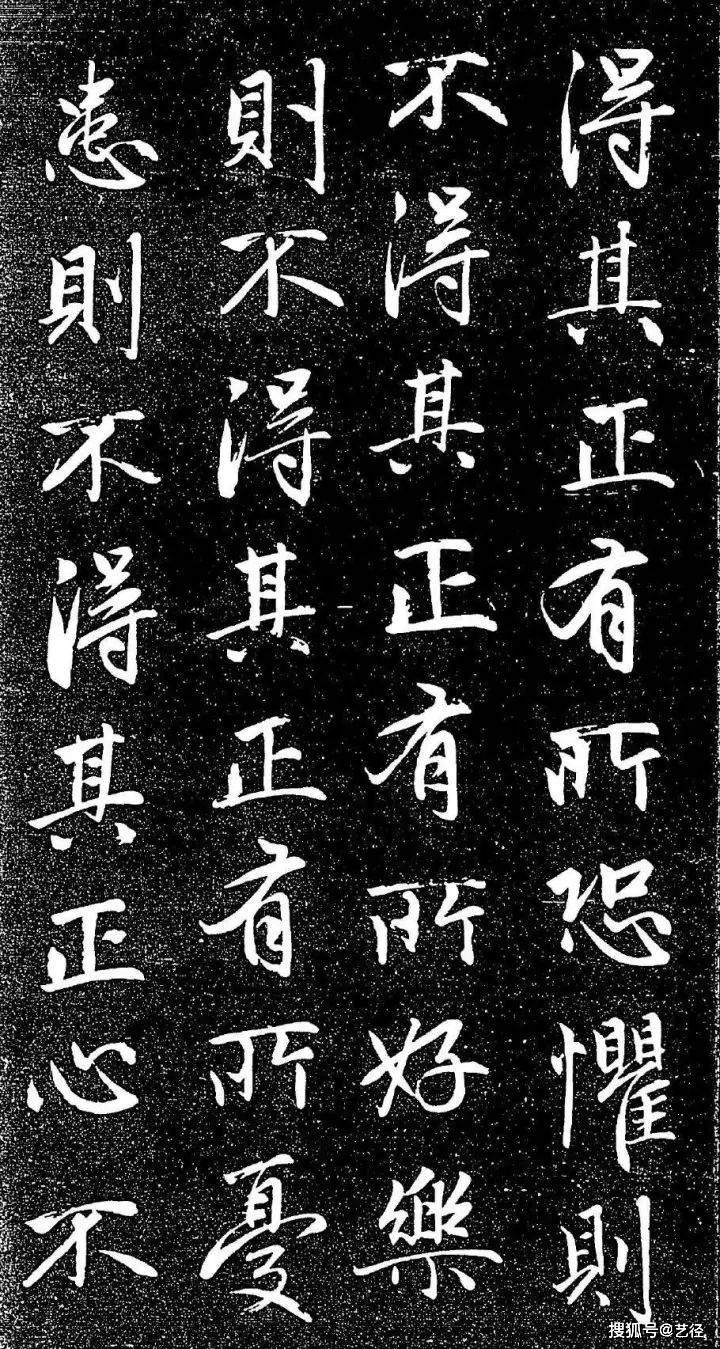 得其正有所恐懼則
不得其正有所好樂
則不得其正有所憂
患則不得其正心不
搜狐号@艺径